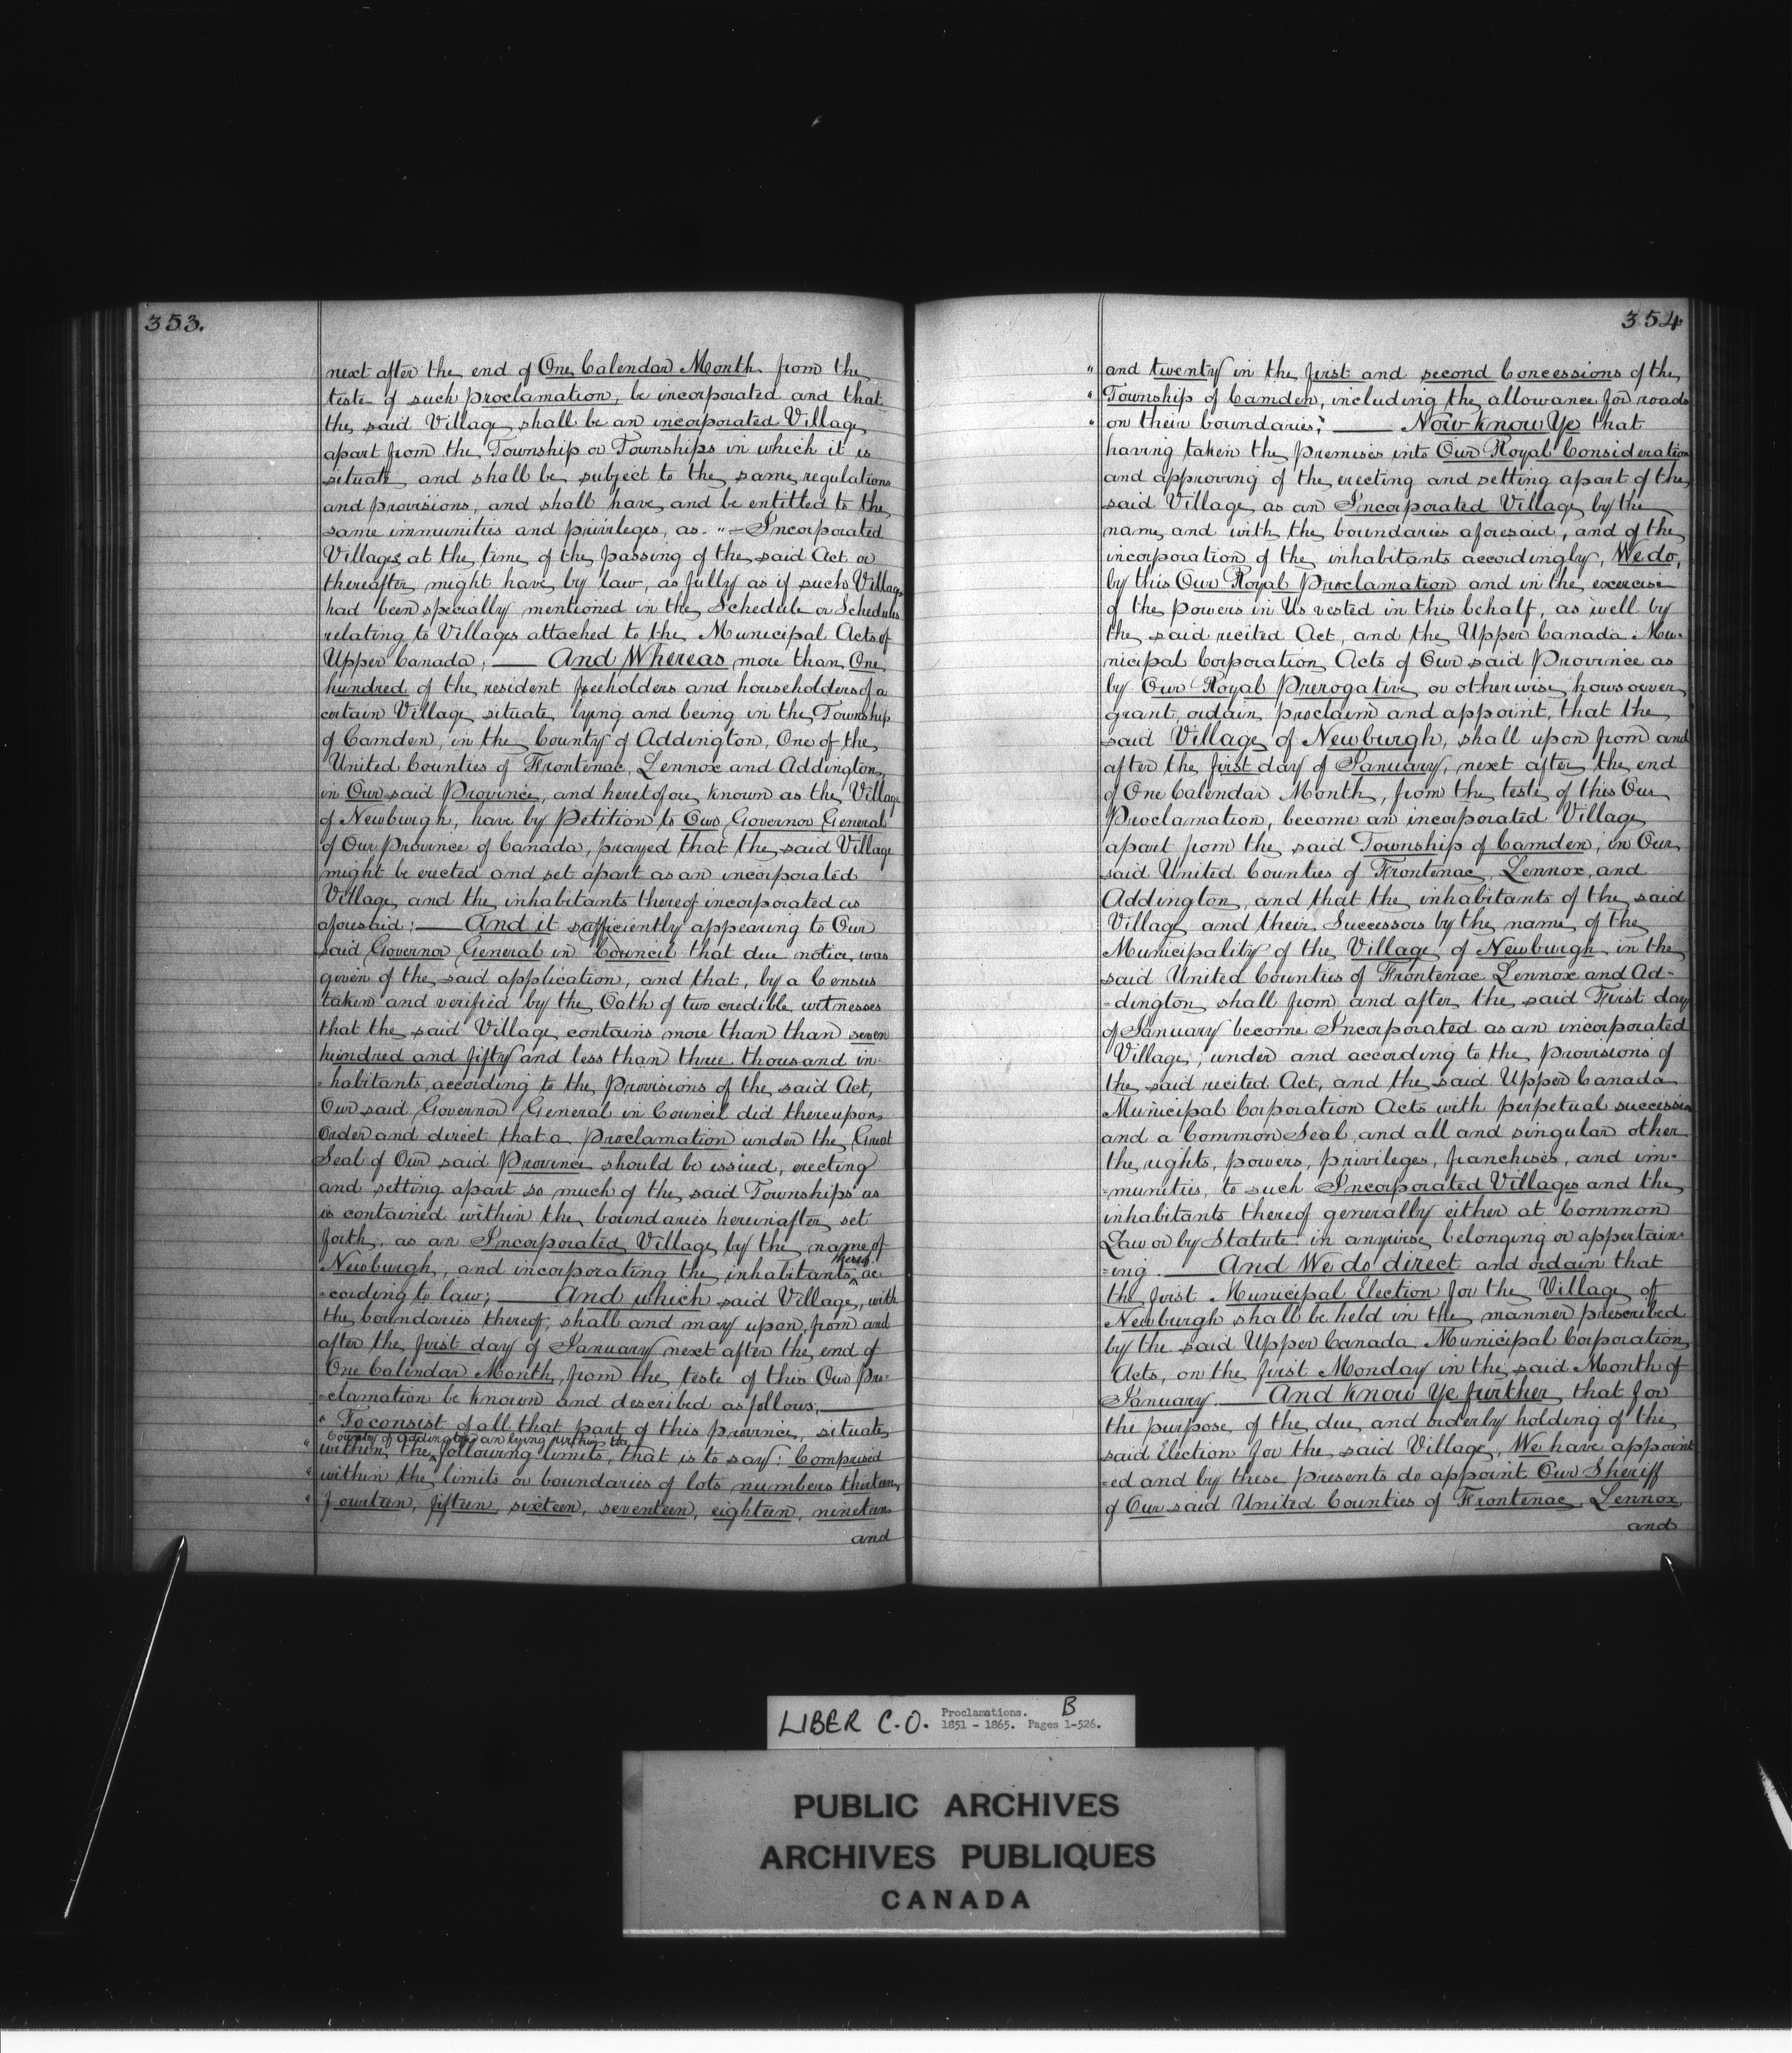 353.
next after the end of One Calendar Month from the
teste of such proclamation, be incorporated and that
the said Village shall be an incorporated Village
apart from the Township or Townships in which it is
situate and shall be subject to the same regulations
and provisions, and shall have and be entitled to the
same immunities and privileges, as "Incorporated
Villages at the time of the passing of the said Act or
thereafter might have by law, as fully as if such Village
had been specially mentioned in the Schedule or Schedules
relating to Villages attached to the Municipal Acts of
Upper Canada; — And Whereas more than One
hundred of the resident freeholders and householders of a
certain Village situate lying and being in the Township
of Camden, in the County of Addington, One of the
United Counties of Frontenac, Lennox and Addington,
in Our said Province, and heretofore known as the Village
of Newburgh, have by Petition to Our Governor General
of Our Province of Canada, prayed that the said Village
might be erected and set apart as an incorporated
Village and the inhabitants thereof incorporated as
aforesaid: — And it sufficiently appearing to Our
said Governor General in Council that due notice was
given of the said application, and that, by a Census
taken and verified by the Oath of two credible witnesses
that the said Village contains more than than seven
hundred and fifty and less than three thousand in-
-habitants, according to the Provisions of the said Act,
Our said Governor General in Council did thereupon
order and direct that a Proclamation under the Great
Seal of Our said Province should be issued, erecting
and setting apart so much of the said Townships as
is contained within the boundaries hereinafter set
forth, as an Incorporated Village by the name of
Newburgh, and incorporating the inhabitants thereof ac
-cording to law; — And which said Village, with
the boundaries thereof, shall and may upon, from and
after the first day of January next after the end of
One Calendar Month, from the teste of this Our Pro-
-clamation be known and described as follows, —
" To consist of all that part of this province, situate
County of Addington an lying within the
" within the following limits, that is to say: Comprised
" within the limits or boundaries of lots numbers thirteen,
" fourteen, fifteen, sixteen, seventeen, eighteen, nineteen
and
354
" and twenty in the first and second Concessions of the
" Township of Camden, including the allowance for roads
" on their boundaries;" — Now know Ye that
having taken the premises into Our Royal Consideration
and approving of the erecting and setting apart of the
said Village as an Incorporated Village by the
name and with the boundaries aforesaid, and of the
incorporation of the inhabitants accordingly, We do,
by this Our Royal Proclamation and in the exercise
of the powers in Us vested in this behalf, as well by
the said recited Act, and the Upper Canada Mu-
nicipal Corporation Acts of Our said Province as
by Our Royal Prerogative or otherwise howsoever
grant, ordain, proclaim and appoint, that the
said Village of Newburgh, shall upon from and
after the first day of January, next after the end
of One Calendar Month, from the teste of this Our
Proclamation, become an incorporated Village
apart from the said Township of Camden, in Our
said United Counties of Frontenac, Lennox, and
Addington, and that the inhabitants of the said
Village and their Successors by the name of the
Municipality of the Village of Newburgh in the
said United Counties of Frontenac Lennox and Ad-
-dington shall from and after the said First day
of January become Incorporated as an incorporated
Village; under and according to the Provisions of
the said recited Act, and the said Upper Canada
Municipal Corporation Acts with perpetual succession
and a Common Seal and all and singular other
the rights, powers, privileges, franchises, and im-
-munities, to such Incorporated Villages and the
inhabitants thereof generally either at Common
Law or by Statute in anywise belonging or appertain-
-ing. — And We do direct and ordain that
the first Municipal Election for the Village of
Newburgh shall be held in the manner prescribed
by the said Upper Canada Municipal Corporation
Acts, on the first Monday in the said Month of
January. — And know Ye further that for
the purpose of the due and orderly holding of the
said Election for the said Village, We have appoint
-ed and by these presents do appoint Our Sheriff
of Our said United Counties of Frontenac, Lennox
and
LIBER C.O. Proclamations. B
1851 - 1865. Pages 1-526.
PUBLIC ARCHIVES
ARCHIVES PUBLIQUES
CANADA